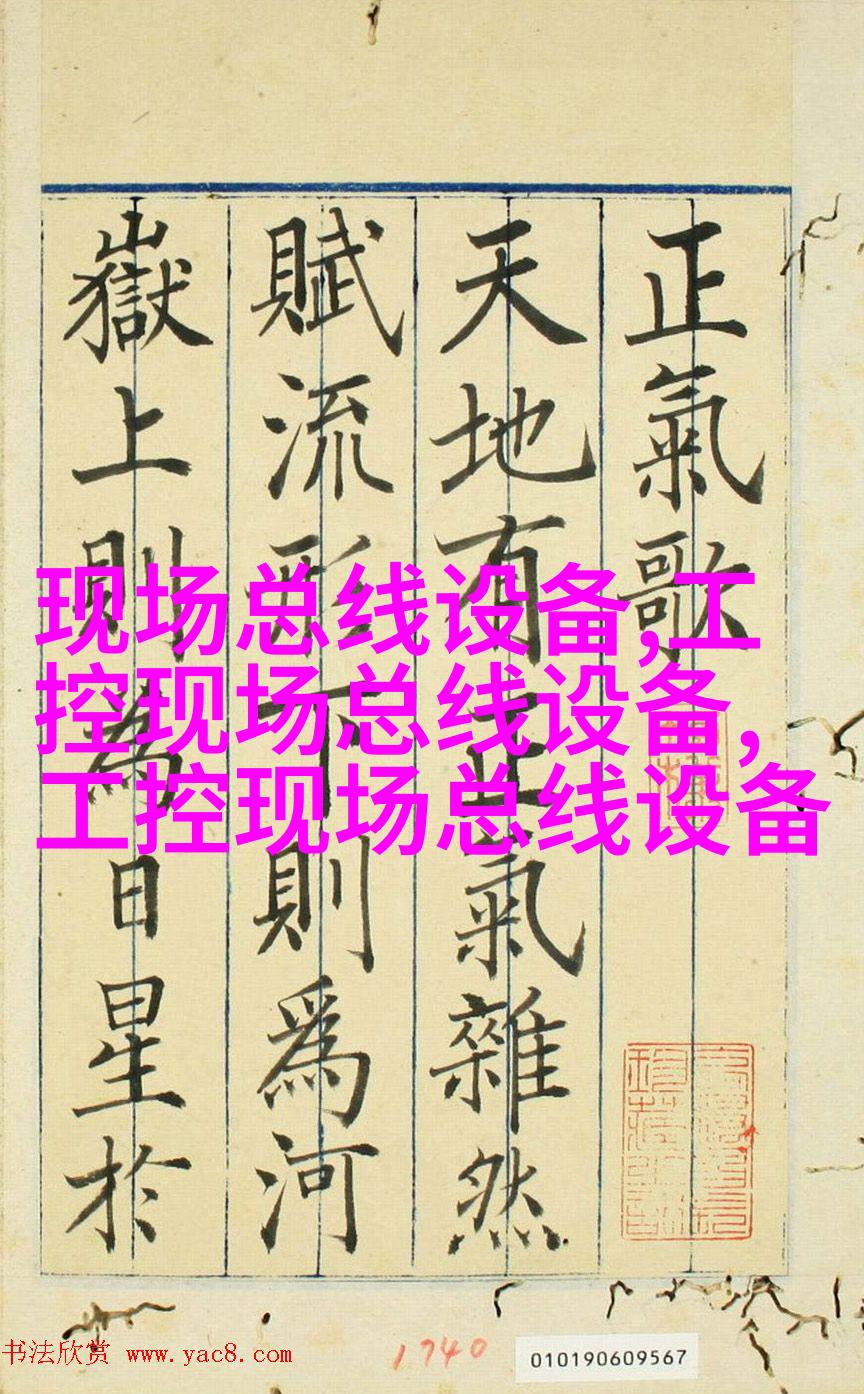 正氣歌
天地有正氣雜然
賦流形下則為河
嶽上則為日星於
现场总线设备,工
控现场总线设备,
工控现场总线设备
书法欣赏 www.yac8.com
1740
010190609567